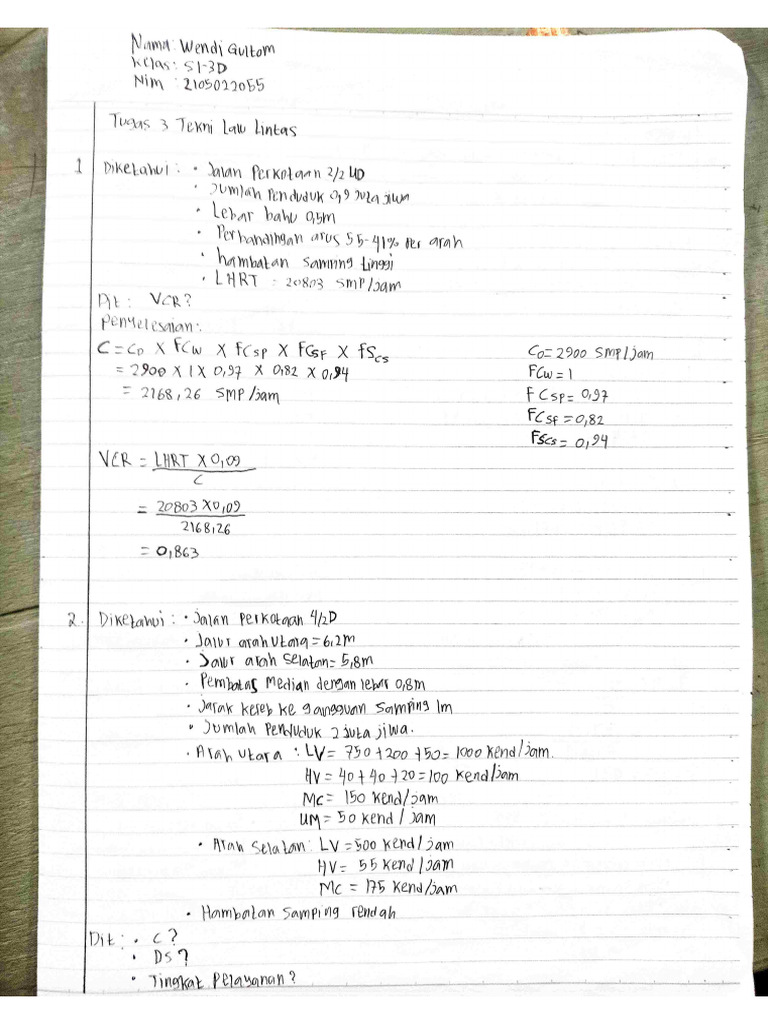 Nama: Wendi Gultom
Kelas: SI-3D
Nim : 2105022055
Tugas 3 Tekni Lalu Lintas
1 Diketahui : • Jalan Perkotaan 2/2 UD
• Jumlah Penduduk 0,9 Juta jiwa
• Lebar bahu 0,5m
• Perbandingan arus 55-41% Per arah
• hambatan samping tinggi
• LHRT : 20803 SMP/jam
Dit : VCR?
Penyelesaian:
C = Co x FCw x FCsp x FCsf x fScs
= 2900 x 1 x 0,97 x 0,82 x 0,94
= 2168,26 SMP/jam
Co = 2900 SMP/jam
FCw = 1
FCsp = 0,97
FCsf = 0,82
FScs = 0,94
VCR = LHRT x 0,09
C
= 20803 x 0,09
2168,26
= 0,863
2. Diketahui : • Jalan Perkotaan 4/2D
• Jalur arah Utara = 6,2m
• Jalur arah Selatan = 5,8m
• Pembatas Median dengan lebar 0,8m
• Jarak kereb ke gangguan samping 1m
• Jumlah Penduduk 2 juta jiwa.
• Arah Utara : LV = 750 + 200 + 50 = 1000 kend/jam.
HV = 40 + 40 + 20 = 100 kend/jam
Mc = 150 kend/jam
UM = 50 kend / jam
• Arah Selatan : LV = 500 kend/jam
HV = 55 kend/jam
Mc = 175 kend/jam
• Hambatan Samping rendah
Dit : • C ?
• DS ?
• Tingkat Pelayanan ?